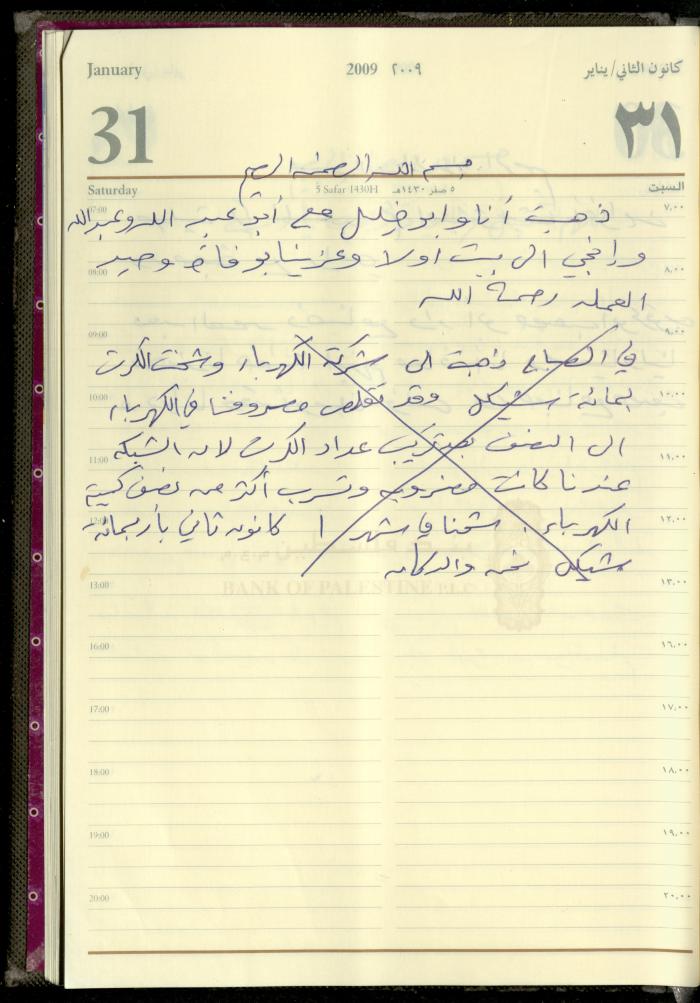 January 2009 ٢٠٠٩ كانون الثاني/يناير
31 ٣١
بسم الله الرحمن الرحيم
Saturday 5 Safar 1430H ٥ صفر ١٤٣٠هـ السبت
07:00 ٧,٠٠
ذهبت أنا وابو خليل مع أبو عبد الله وعبدالله
08:00 ٨,٠٠
الى بيت اولا وعزينا بوفاة وحيد
العملة رحمة الله
09:00 ٩,٠٠
في الصباح ذهبت الى شركة الكهرباء وشحنت الكرت
10:00 ١٠,٠٠
بمائة شيكل وقد تقلص مصروفنا في الكهرباء
11:00 ١١,٠٠
الى النصف بعد تركيب عداد الكرت لان الشبكة
عندنا كانت مضروبه وتسرب أكثر من نصف كمية
12:00 ١٢,٠٠
الكهرباء. شحنا في شهر ١ كانون ثاني بأربعمائة
شيكل نحن والسكان
13:00 ١٣,٠٠
BANK OF PALESTINE PLC
16:00 ١٦,٠٠
17:00 ١٧,٠٠
18:00 ١٨,٠٠
19:00 ١٩,٠٠
20:00 ٢٠,٠٠